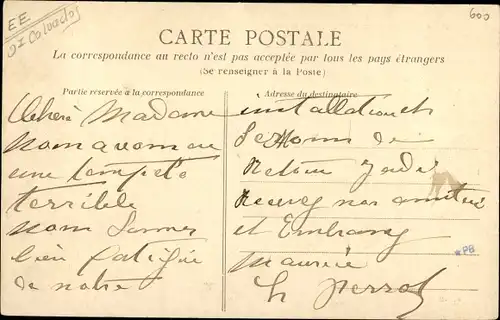 EE
Calvados
600
CARTE POSTALE
La correspondance au recto n'est pas acceptée par tous les pays étrangers
(Se renseigner à la Poste)
Partie réservée à la correspondance
Chere Madame
nom avom eu
une tempete
terrible
nom sommes
bien fatigué
de notre
Adresse du destinataire
installation et
Serons de
Retour Jeudi
Recevez nos amitiés
et Embrassez
Maurice
h Perrot
*PB